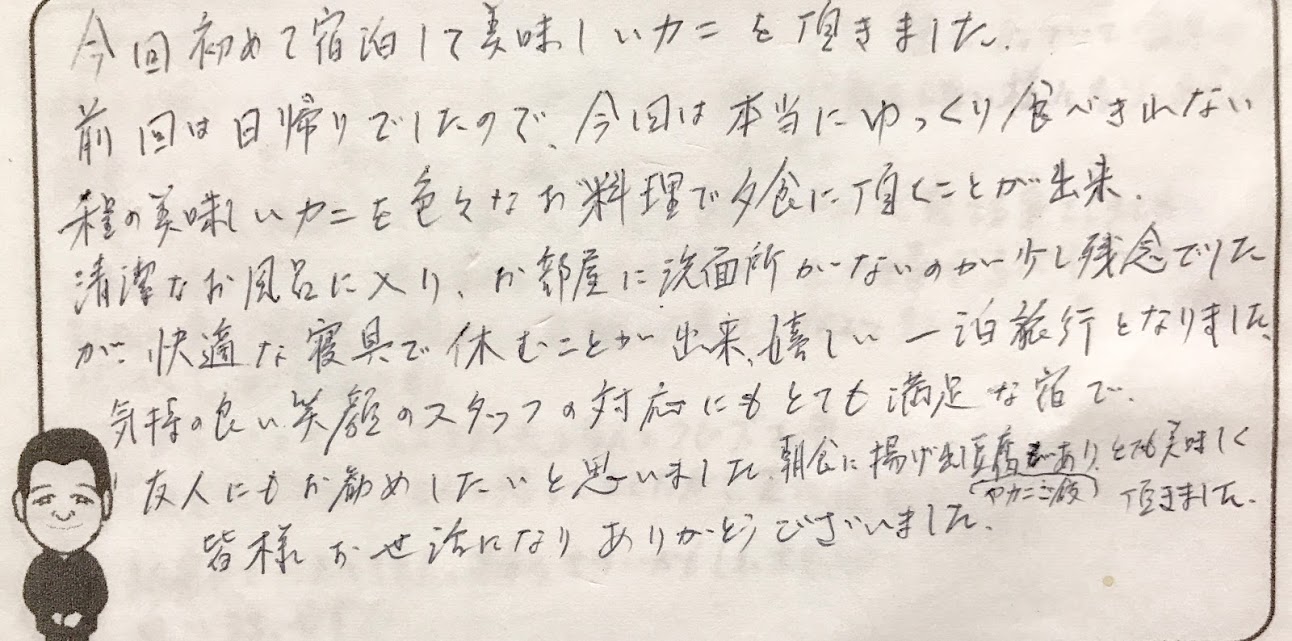 今回初めて宿泊して美味しいカニを頂きました.
前回は日帰りでしたので、今回は本当にゆっくり食べきれない
程の美味しいカニを色々なお料理で夕食に頂くことが出来.
清潔なお風呂に入り、お部屋に洗面所がないのが少し残念でした
が、快適な寝具で休むことが出来、嬉しい一泊旅行となりました.
気持の良い笑顔のスタッフの対応にもとても満足な宿で.
友人にもお勧めしたいと思いました.朝食に揚げ出し豆腐があり、とても美味しく
(やカニご飯)
頂きました.
皆様お世話になりありがとうございました.